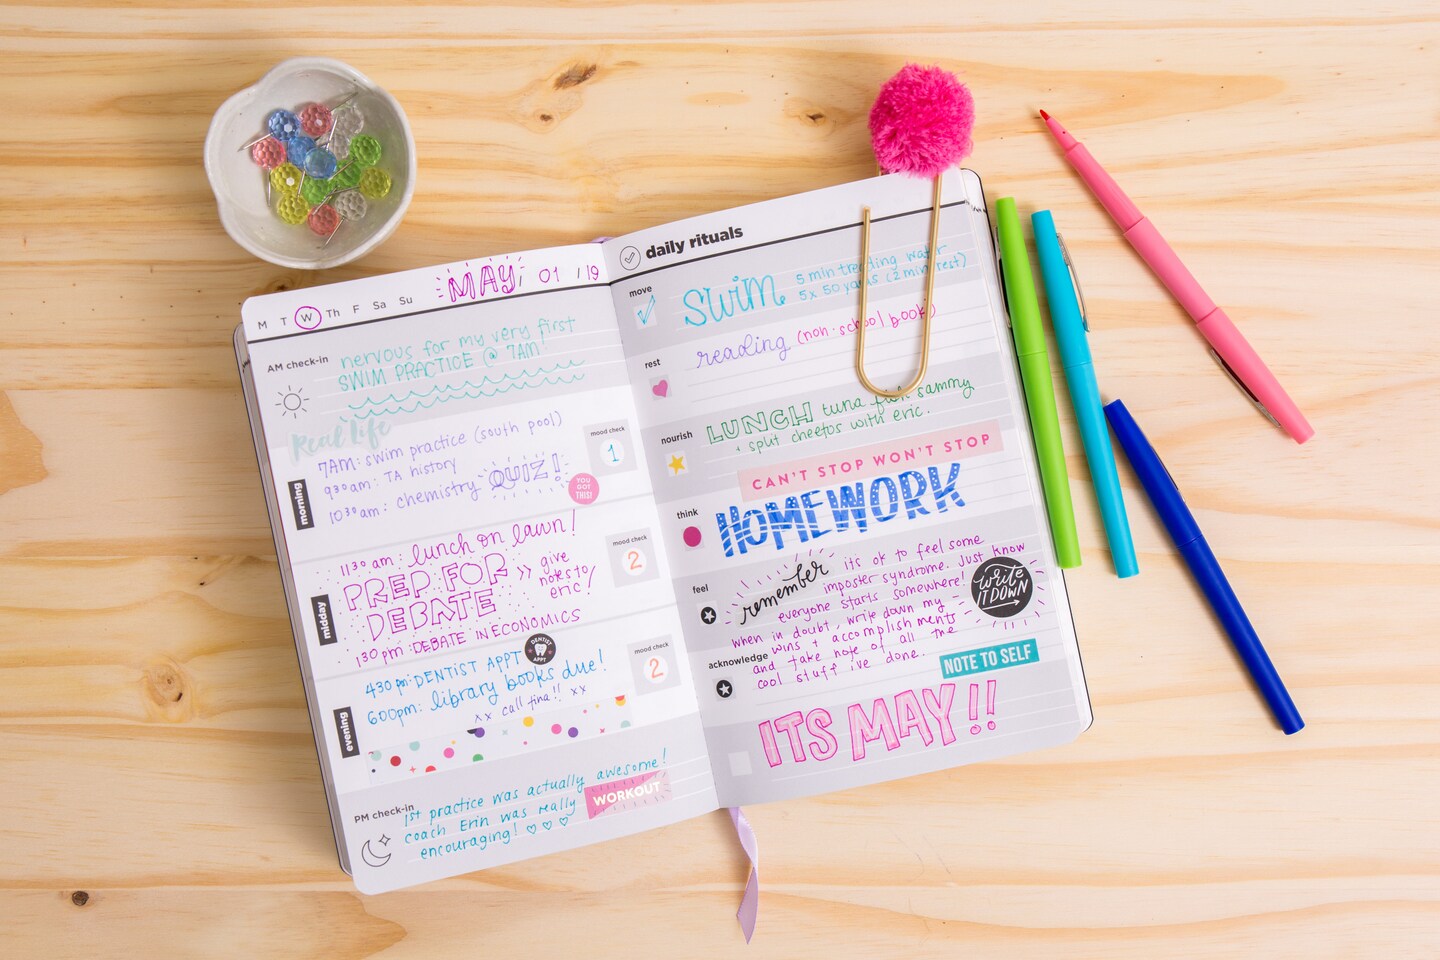 M T W Th F Sa Su MAY 01 /19
AM check-in
nervous for my very first
SWIM PRACTICE @ 7AM!
Real Life
morning
7AM: swim practice (south pool)
930am: TA history
1030am: chemistry QUIZ!
YOU GOT THIS!
mood check
1
midday
1130 am: lunch on lawn!
PREP FOR
DEBATE
>> give
notes to
eric!
130pm: DEBATE IN ECONOMICS
mood check
2
evening
430pm: DENTIST APPT
DENTIST APPT
600pm: library books due!
xx call tina!! xx
mood check
2
PM check-in
1st practice was actually awesome!
coach Erin was really
encouraging! ♡♡♡
WORKOUT
daily rituals
move
SWIM
5 min treading water
5x 50 yards (2 min rest)
rest
reading (non-school book)
nourish
LUNCH tuna fish sammy
+ split cheetos with eric.
CAN'T STOP WON'T STOP
think
HOMEWORK
feel
remember its ok to feel some
imposter syndrome. Just know
everyone starts somewhere!
when in doubt, write down my
wins + accomplishments
and take note of all the
cool stuff i've done.
WRITE IT DOWN
acknowledge
NOTE TO SELF
ITS MAY!!